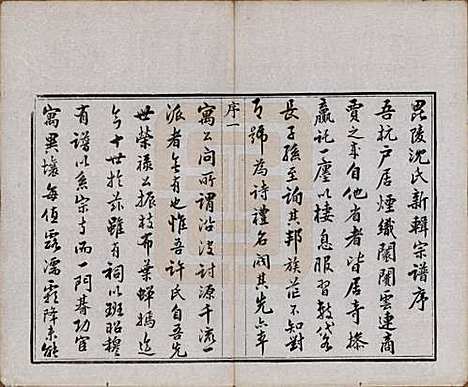 毘陵沈氏新輯宗譜序
吾杭戶居煙織闤闠雲連商
賈之來自他省者皆居奇搽
贏託一廛以棲息服習數代名
長子孫至詢其邦族茫不知對
乃號為詩禮名閥其先亦率
序一
寓公向所謂沿波討源千流一
派者無有也惟吾許氏自吾先
世榮祿公振枝布葉蟬嫣迄
今十世於茲雖有祠以班昭穆
有譜以系宗子而一門朞功宦
寓異壤每值露濡霜降未能